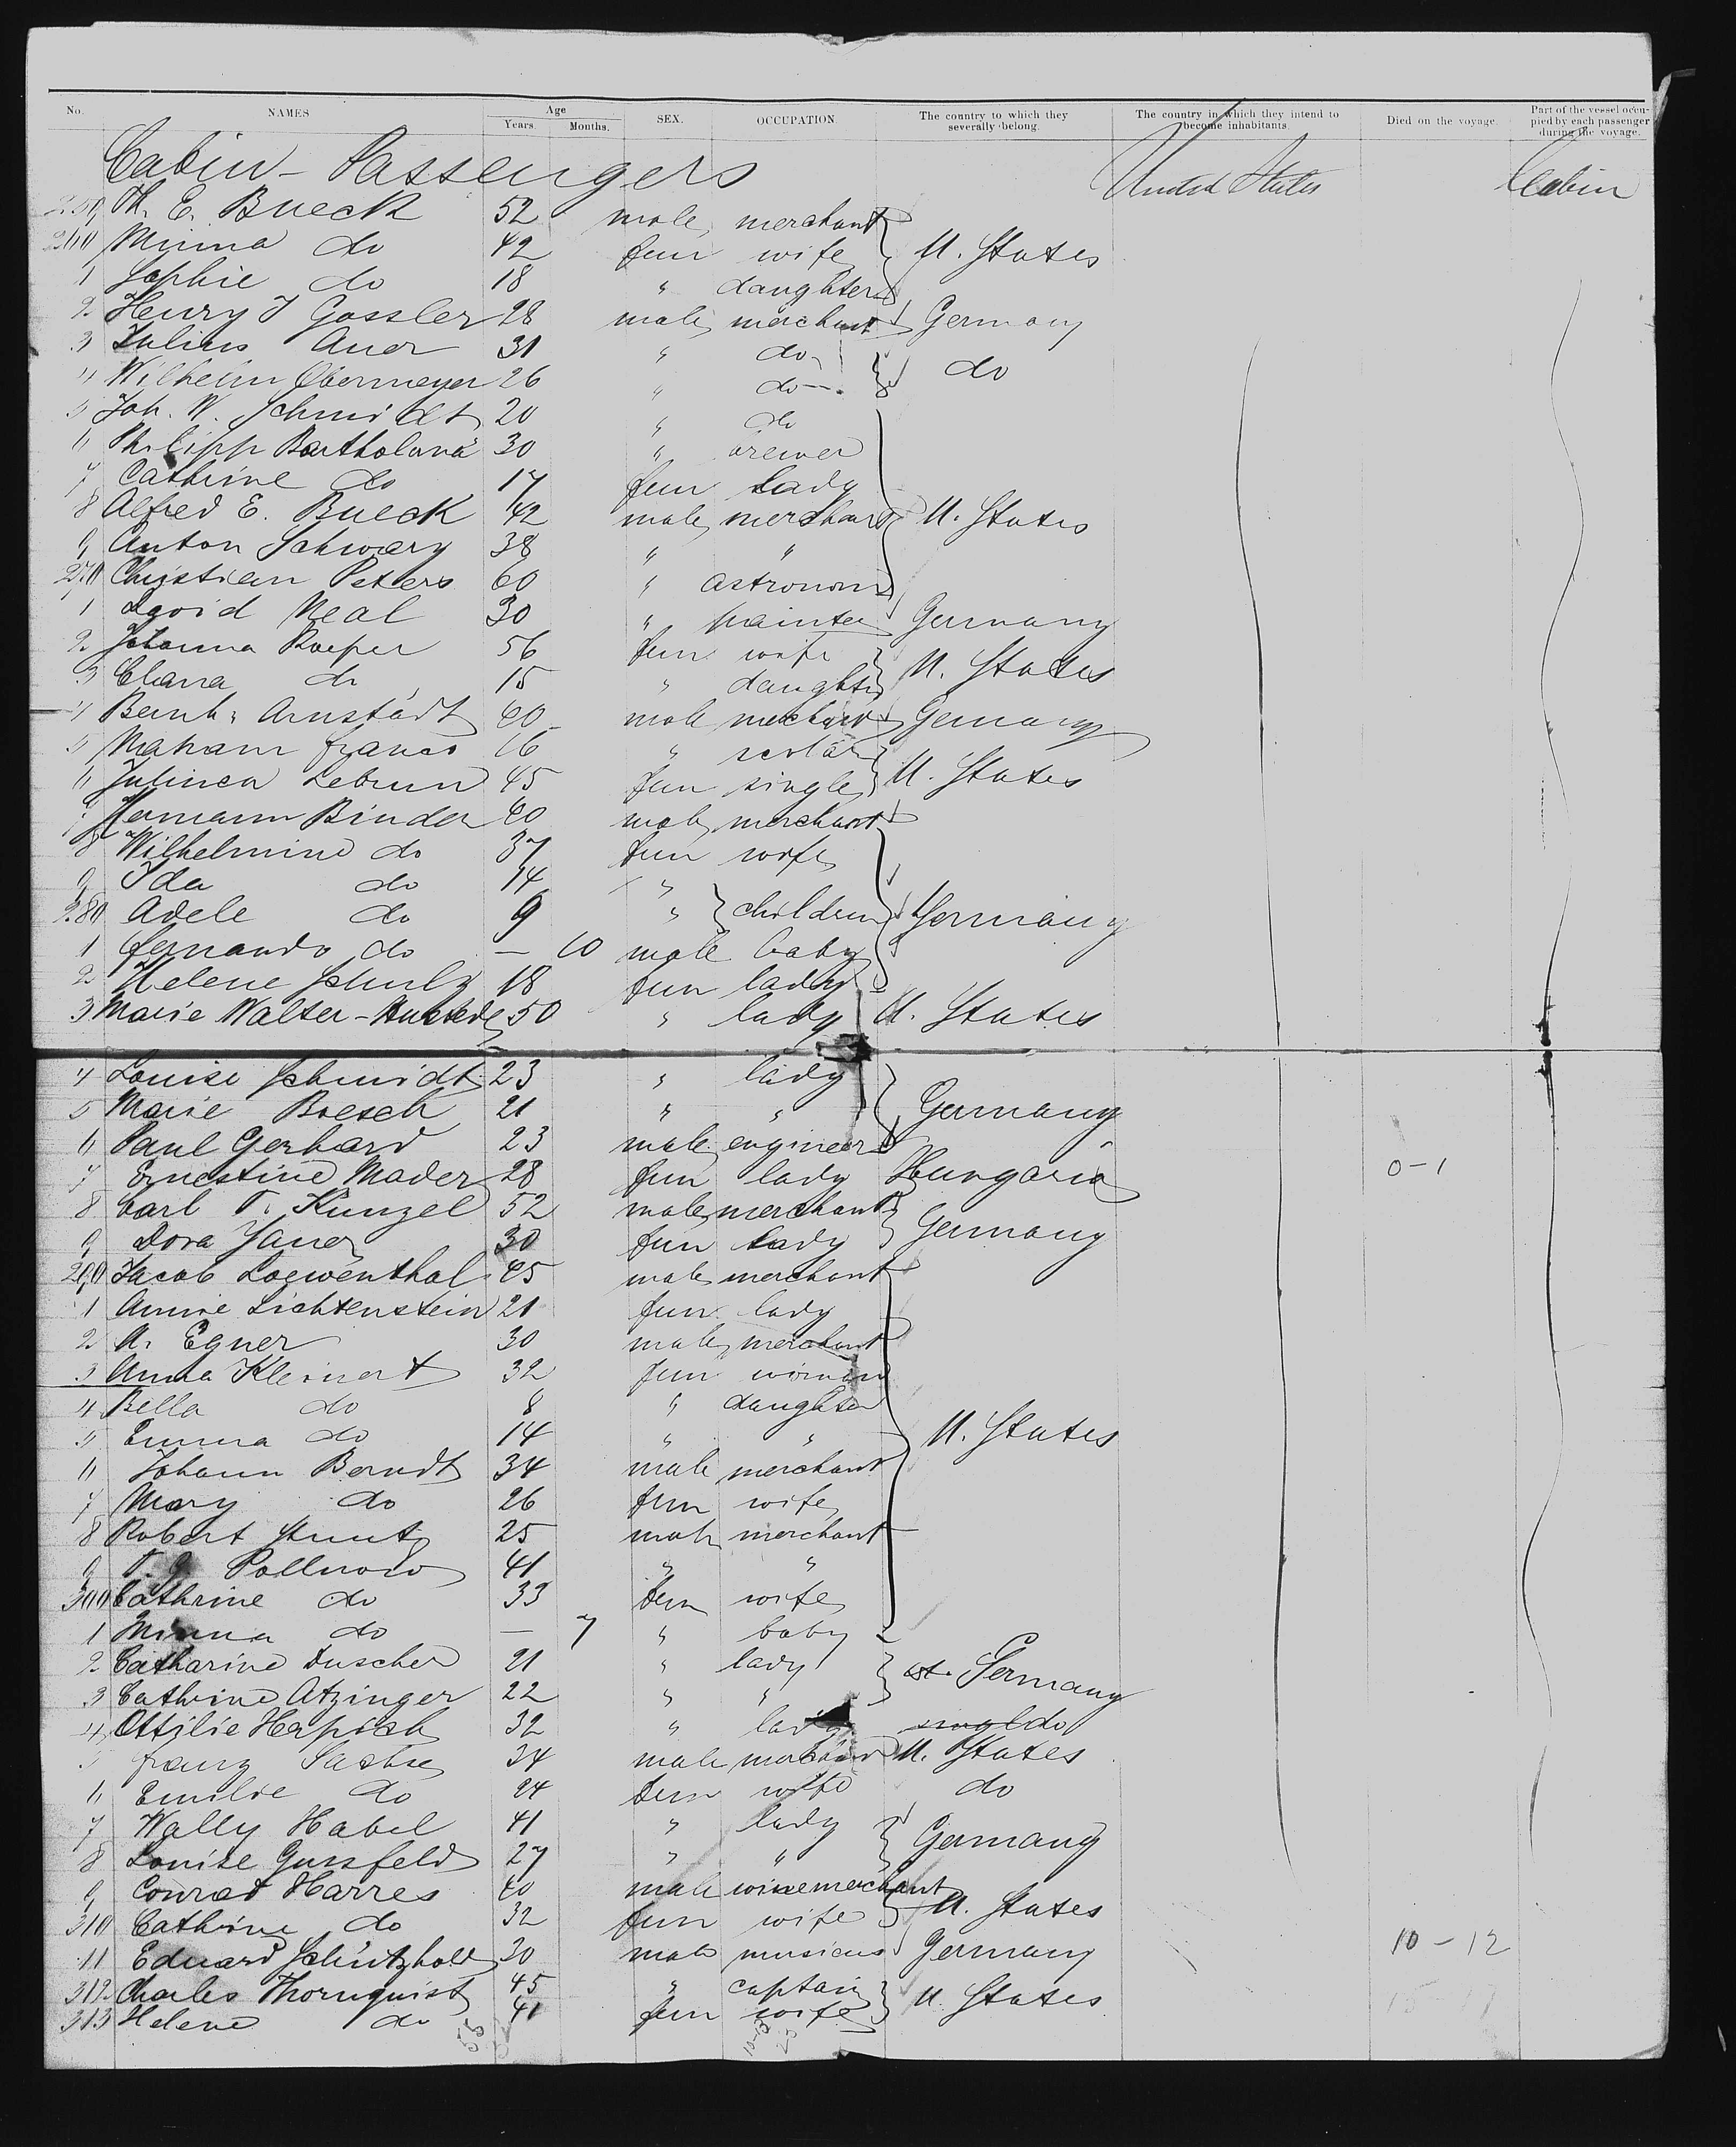 No. NAMES Age Years. Months. SEX. OCCUPATION. The country to which they severally belong. The country in which they intend to become inhabitants. Died on the voyage. Part of the vessel occupied by each passenger during the voyage.
Cabin - Passengers United States Cabin
259 Th. E. Bueck 52 male merchant
260 Minna do 42 fem wife U. States
1 Sophie do 18 " daughter
2 Henry J Gossler 28 male merchant Germany
3 Julius Auer 31 " do
4 Wilhelm Obermeyer 26 " do do
5 Joh. W. Schmidt 20 " do
6 Philipp Bartholomä 30 " brewer
7 Cathrine do 17 fem lady
8 Alfred E. Bueck 42 male merchant U. States
9 Anton Schwarz 38 " "
270 Christian Peters 60 " astronom
1 David Neal 30 " painter Germany
2 Johanna Roeper 56 fem wife
3 Clara do 15 " daughter U. States
4 Bernh. Arnstädt 40 male merchant Germany
5 franco 16 "
6 Lebrun 45 fem single U. States
7 Hermann Binder 40 male merchant
8 Wilhelmine do 37 fem wife
9 Ida do 14 "
280 Adele do 9 " children Germany
1 fernando do — 10 male baby
2 Helene Schulz 18 fem lady
3 Marie Walter - 50 " lady U. States
4 Louise Schmidt 23 " lady
5 Marie Boesch 21 " " Germany
6 Paul Gerhard 23 male engineer
7 Ernestine Mader 28 fem lady Hungaria 0-1
8 Carl T. Künzel 52 male merchant
9 Dora 30 fem lady Germany
290 Jacob Loewenthal 45 male merchant
1 Annie Lichtenstein 21 fem lady
2 A. Egner 30 male merchant
3 Anna Kleinert 32 fem woman
4 Bella do 8 " daughter
5 Emma do 14 " " U. States
6 Johann Berndt 34 male merchant
7 Mary do 26 fem wife
8 Robert 25 male merchant
9 Pollnow 41 " "
300 Cathrine do 33 fem wife
1 Minna do — 7 " baby
2 Catharine Duscher 21 " lady
3 Cathrine Atzinger 22 " " Germany
4 Ottilie Herpich 32 " lady do
5 franz 34 male merchant U. States
6 Emilie do 24 fem wife do
7 Wally Habel 41 " lady
8 Louise Gussfeld 27 " " Germany
9 Conrad Harres 40 male winemerchant
310 Cathrine do 32 fem wife U. States
11 Eduard Schützhold 20 male musicus Germany 10-12
312 Charles Thornquist 45 " captain
313 Helene do 41 fem wife U. States